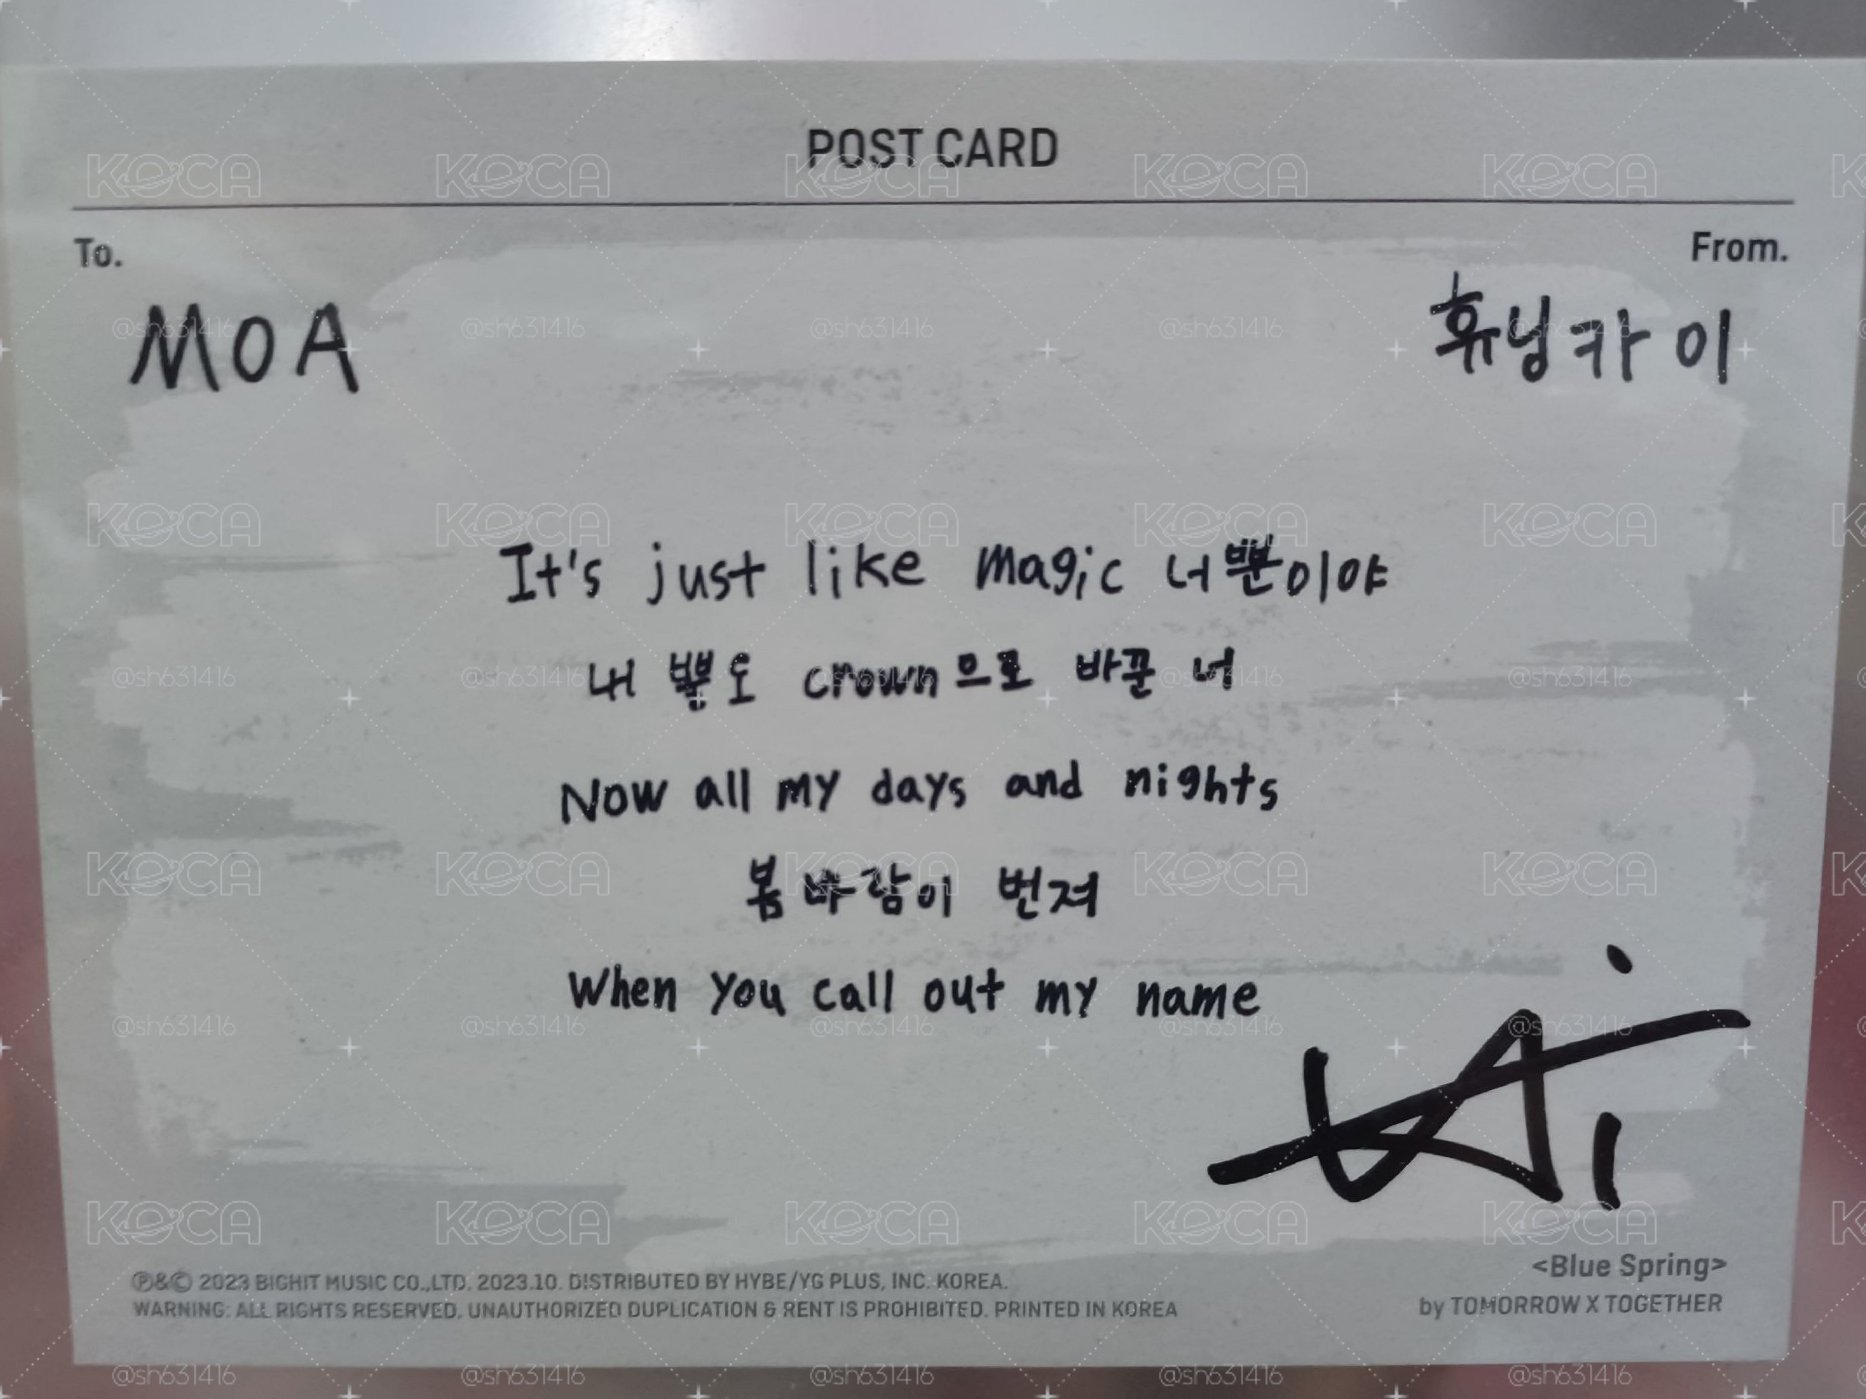 POST CARD
To.
From.
MOA
휴닝카이
It's just like magic 너뿐이야
내 뿔도 crown으로 바꾼 너
Now all my days and nights
봄바람이 번져
When you call out my name
Kai
<Blue Spring>
by TOMORROW X TOGETHER
℗&© 2023 BIGHIT MUSIC CO.,LTD. 2023.10. DISTRIBUTED BY HYBE/YG PLUS, INC. KOREA.
WARNING: ALL RIGHTS RESERVED. UNAUTHORIZED DUPLICATION & RENT IS PROHIBITED. PRINTED IN KOREA
KOCA
@sh631416